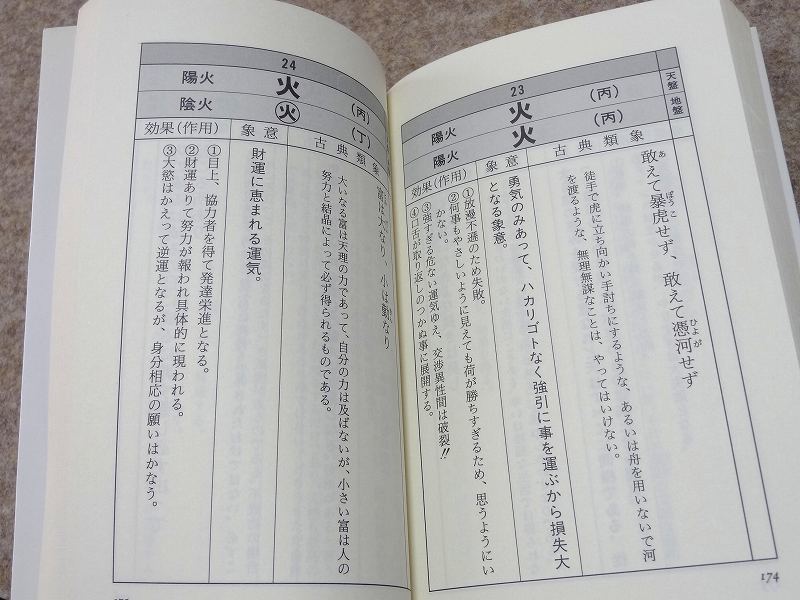 天盤 地盤
23
火 (丙) 陽火
火 (丙) 陽火
古典類象
敢えて暴虎せず、敢えて憑河せず
あ ぼうこ ひょうが
徒手で虎に立ち向かい手討ちにするような、あるいは舟を用いないで河
を渡るような、無理無謀なことは、やってはいけない。
象意
勇気のみあって、ハカリゴトなく強引に事を運ぶから損失大
となる象意。
効果(作用)
①放漫不遜のため失敗。
②何事もやさしいように見えても荷が勝ちすぎるため、思うようにい
かない。
③強すぎる危ない運気ゆえ、交渉異性間は破裂!!
④口舌が取り返しのつかぬ事に展開する。
174
24
火 (丙) 陽火
火 (丁) 陰火
古典類象
富は天なり、小は勤なり
大いなる富は天理の力であって、自分の力は及ばないが、小さい富は人の
努力と結晶によって必ず得られるものである。
象意
財運に恵まれる運気。
効果(作用)
①目上、協力者を得て発達栄進となる。
②財運ありて努力が報われ具体的に現われる。
③大慾はかえって逆運となるが、身分相応の願いはかなう。